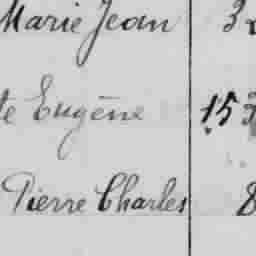 Marie Jean 3
te Eugène 15
Pierre Charles 8